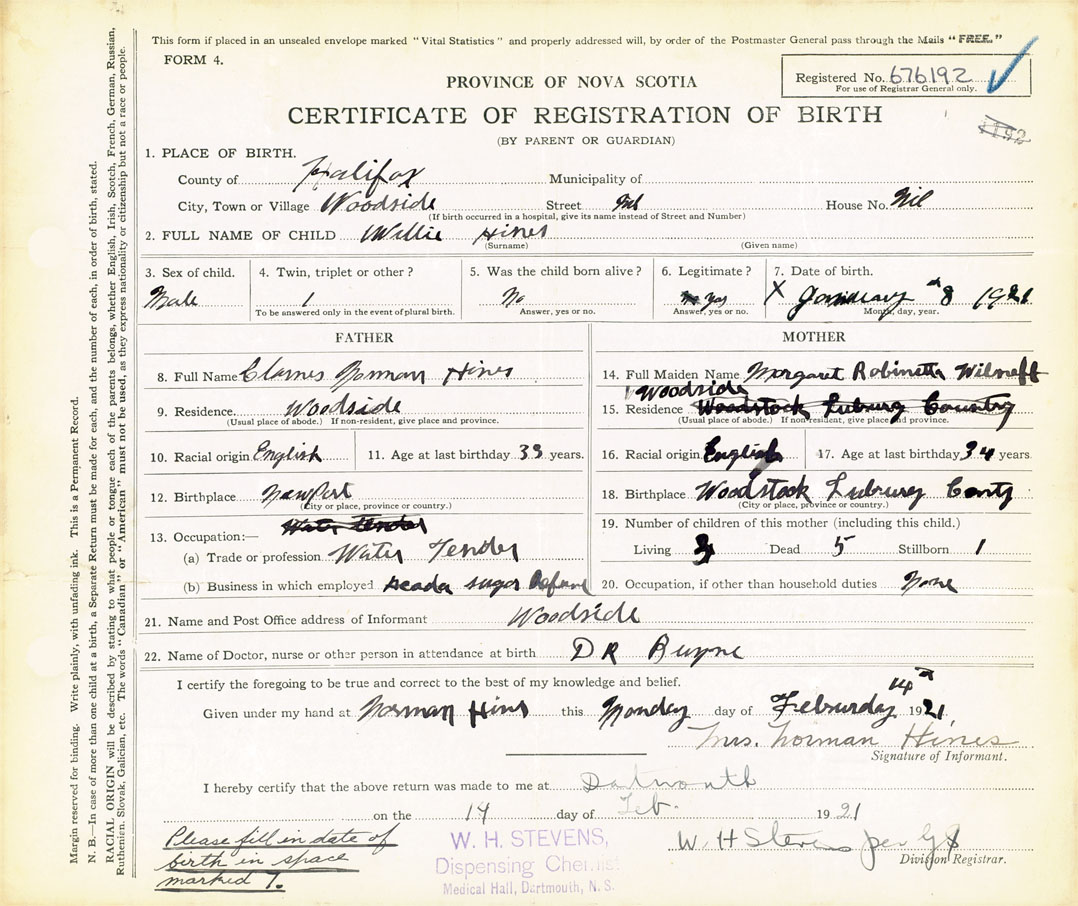 This form if placed in an unsealed envelope marked "Vital Statistics" and properly addressed will, by order of the Postmaster General pass through the Mails "FREE."
FORM 4.
PROVINCE OF NOVA SCOTIA
Registered No. 676192
For use of Registrar General only.
CERTIFICATE OF REGISTRATION OF BIRTH
(BY PARENT OR GUARDIAN)
1. PLACE OF BIRTH.
County of Halifax Municipality of
City, Town or Village Woodside Street House No. Nil
(If birth occurred in a hospital, give its name instead of Street and Number)
2. FULL NAME OF CHILD Willie Hines
(Surname) (Given name)
3. Sex of child. 4. Twin, triplet or other? 5. Was the child born alive? 6. Legitimate? 7. Date of birth.
Male 1 No Yes X 8 1921
To be answered only in the event of plural birth. Answer, yes or no. Answer, yes or no. Month, day, year.
FATHER
8. Full Name Norman Hines
9. Residence. Woodside
(Usual place of abode.) If non-resident, give place and province.
10. Racial origin English 11. Age at last birthday 33 years.
12. Birthplace NewPort
(City or place, province or country.)
Water Tender
13. Occupation:—
(a) Trade or profession Water Tender
(b) Business in which employed Acada sugar
MOTHER
14. Full Maiden Name Margaret Robinetta Wilneff
Woodside
15. Residence Woodstock Luburg Country
(Usual place of abode.) If non-resident, give place and province.
16. Racial origin English 17. Age at last birthday 34 years
18. Birthplace Woodstock Luburg Conty
(City or place, province or country.)
19. Number of children of this mother (including this child.)
Living 3 Dead 5 Stillborn 1
20. Occupation, if other than household duties None
21. Name and Post Office address of Informant Woodside
22. Name of Doctor, nurse or other person in attendance at birth DR
I certify the foregoing to be true and correct to the best of my knowledge and belief.
14
Given under my hand at Norman Hins this Monday day of Feburday 1921.
Mrs. Norman Hines
Signature of Informant.
I hereby certify that the above return was made to me at Dartmouth
on the 14 day of Feb. 1921
W. H. STEVENS,
Dispensing Chemist
Medical Hall, Dartmouth, N. S.
W. H Stevens per
Division Registrar.
Please fill in date of
birth in space
marked 7.
Margin reserved for binding. Write plainly, with unfading ink. This is a Permanent Record.
N. B.—In case of more than one child at a birth, a Separate Return must be made for each, and the number of each, in order of birth, stated.
RACIAL ORIGIN will be described by stating to what people or tongue each of the parents belongs, whether English, Irish, Scotch, French, German, Russian,
Ruthenien, Slovak, Galician, etc. The words "Canadian" or "American" must not be used, as they express nationality or citizenship but not a race or people.